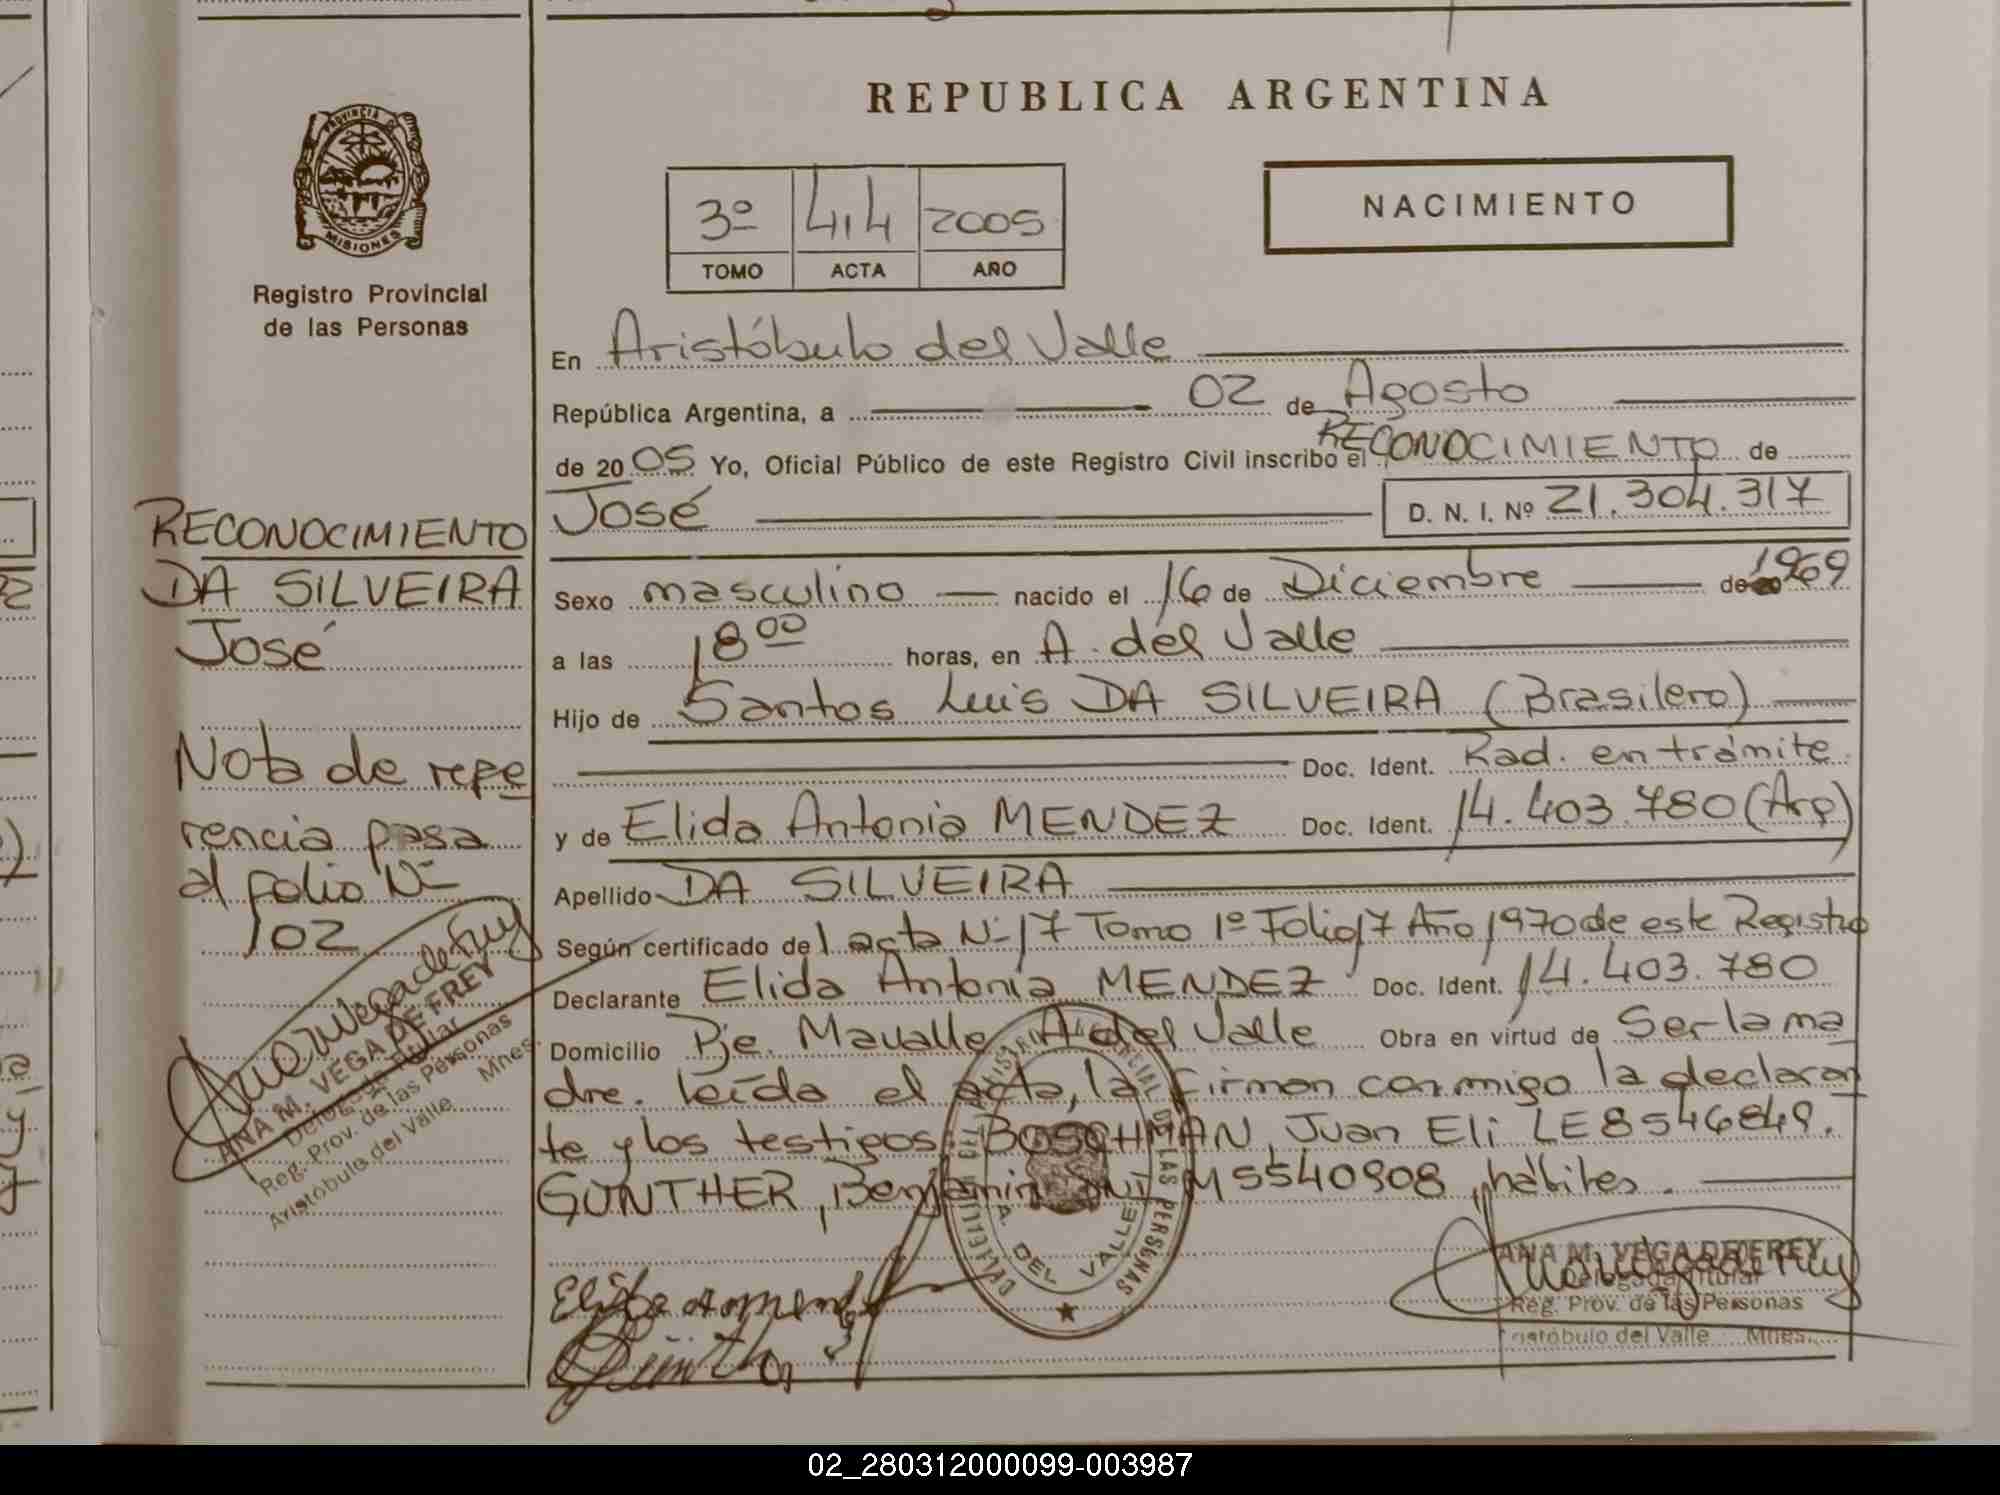 REPUBLICA ARGENTINA
PROVINCIA DE
MISIONES
Registro Provincial
de las Personas
3º 414 2005
TOMO ACTA AÑO
NACIMIENTO
En Aristóbulo del Valle
República Argentina, a 02 de Agosto
de 2005 Yo, Oficial Público de este Registro Civil inscribo el RECONOCIMIENTO de
José D. N. I. Nº 21.304.317
Sexo masculino nacido el 16 de Diciembre de 1969
a las 18 00 horas, en A. del Valle
Hijo de Santos Luis DA SILVEIRA (Brasilero)
Doc. Ident. Rad. en trámite
y de Elida Antonia MENDEZ Doc. Ident. 14.403.780 (Arg)
Apellido DA SILVEIRA
Según certificado de acta Nº 17 Tomo 1º Folio 17 Año 1970 de este Registro
Declarante Elida Antonia MENDEZ Doc. Ident. 14.403.780
Domicilio Pje. Mavalle A del Valle Obra en virtud de Ser la ma
dre. Leída el acta, la firman conmigo la declaran
te y los testigos: BOSCHMAN, Juan Eli LE 8546849.
GUNTHER, Benjamin DNI M5540908, hábiles.
RECONOCIMIENTO
DA SILVEIRA
José
Nota de refe
rencia pasa
al folio Nº
102
ANA M. VEGA DE FREY
Delegada Titular
Reg. Prov. de las Personas
Aristóbulo del Valle Mnes.
DEL VALLE
ANA M. VEGA DE FREY
Delegada Titular
Reg. Prov. de las Personas
Aristóbulo del Valle Mnes.
02_280312000099-003987